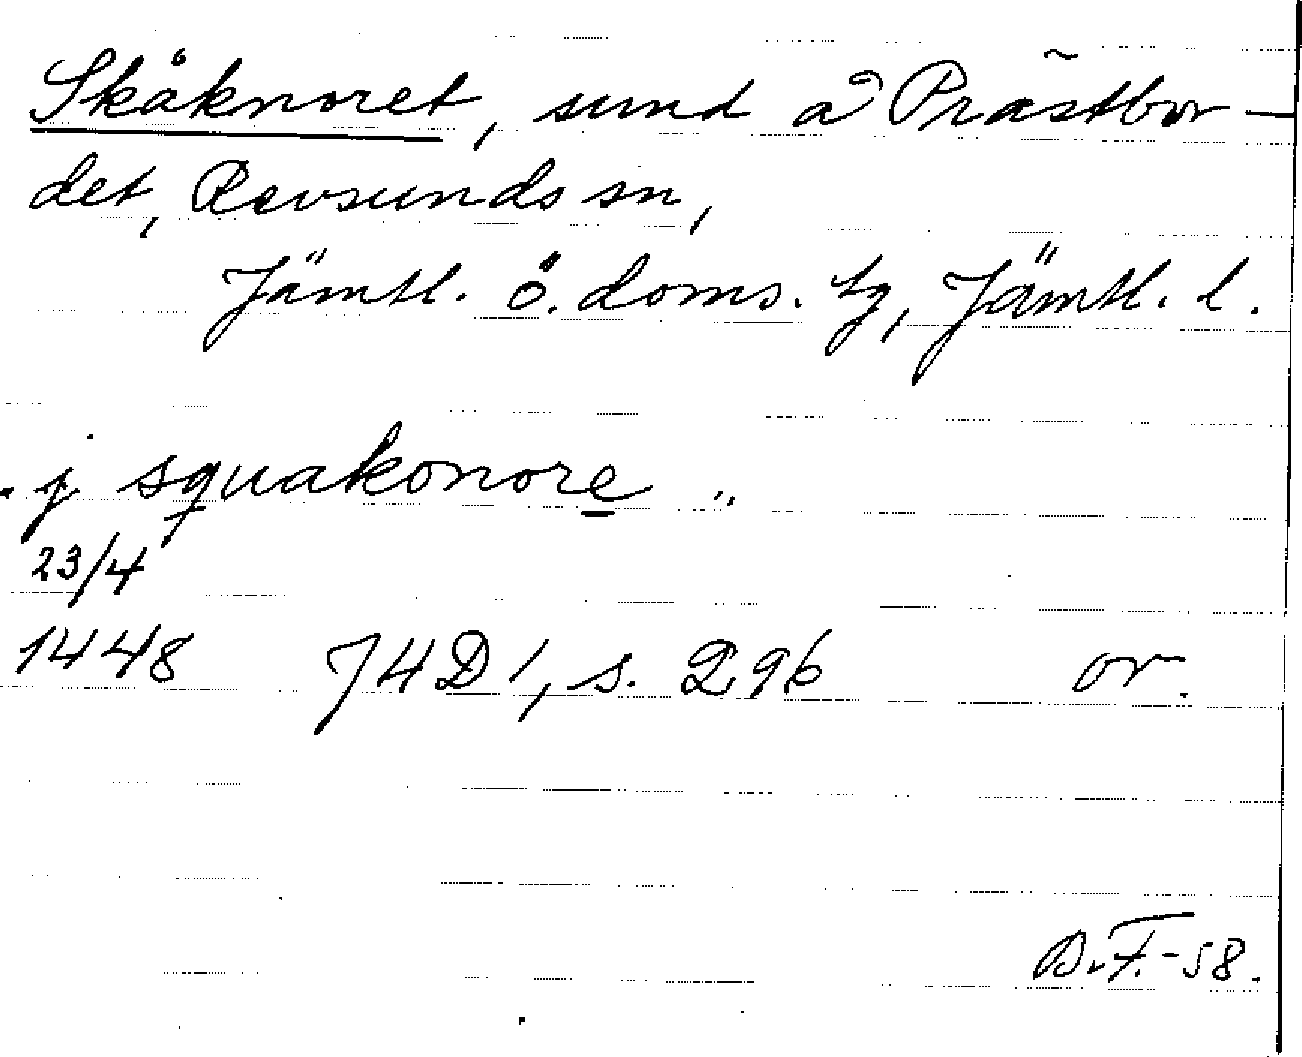 Skåknoret, sund å Prästbor-
det, Revsunds sn,
Jämtl. ö. doms. tg, Jämtl. l.
. j squakonore ..
23/4
1448 J4D1, s. 296 or.
B.F.-58.